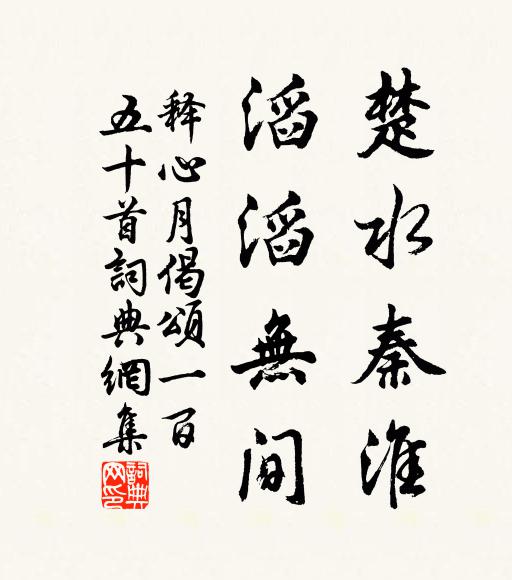 楚水秦淮
滔滔無间
释心月偈頌一百
五十首詞典網集
詞典网印